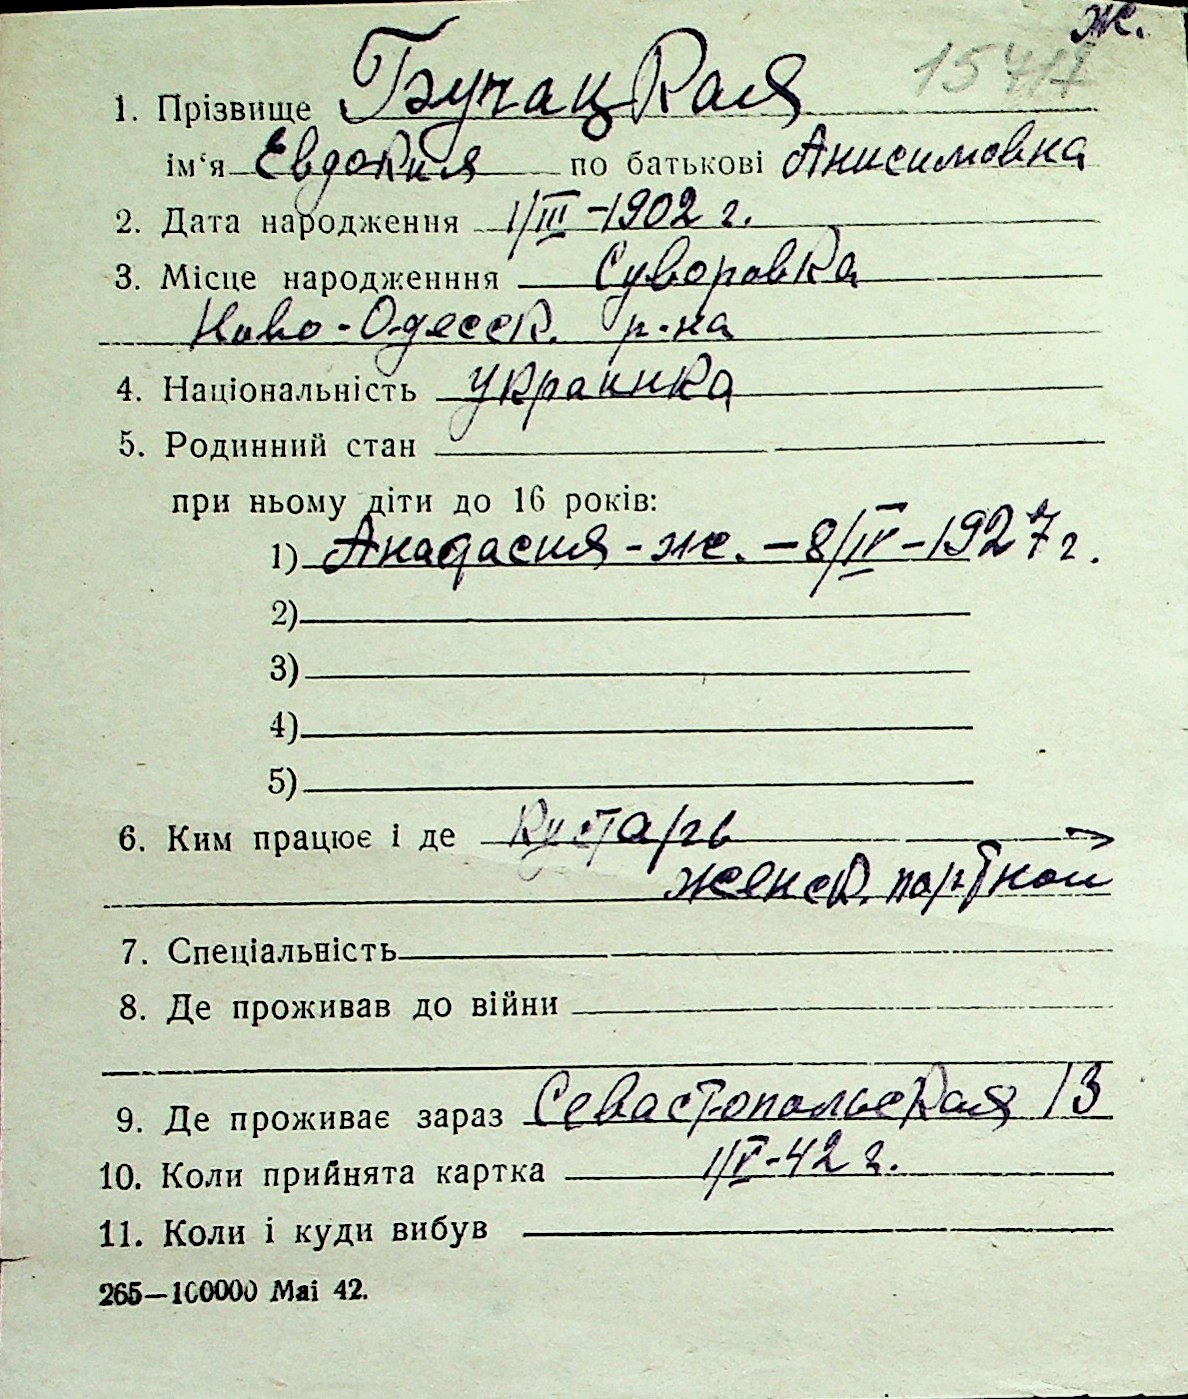 ж.
1541
1. Прізвище Бучацкая
ім'я Евдокия по батькові Анисимовна
2. Дата народження 1/III-1902 г.
3. Місце народженння Суворовка
Ново-Одесск. р-на
4. Національність украинка
5. Родинний стан
при ньому діти до 16 років:
1) Анастасия - ж. - 8/IV-1927 г.
2)
3)
4)
5)
6. Ким працює і де Кустарь
женск. портной
7. Спеціальність
8. Де проживав до війни
9. Де проживає зараз Севастопольская 13
10. Коли прийнята картка 1/V-42 г.
11. Коли і куди вибув
265—100000 Mai 42.